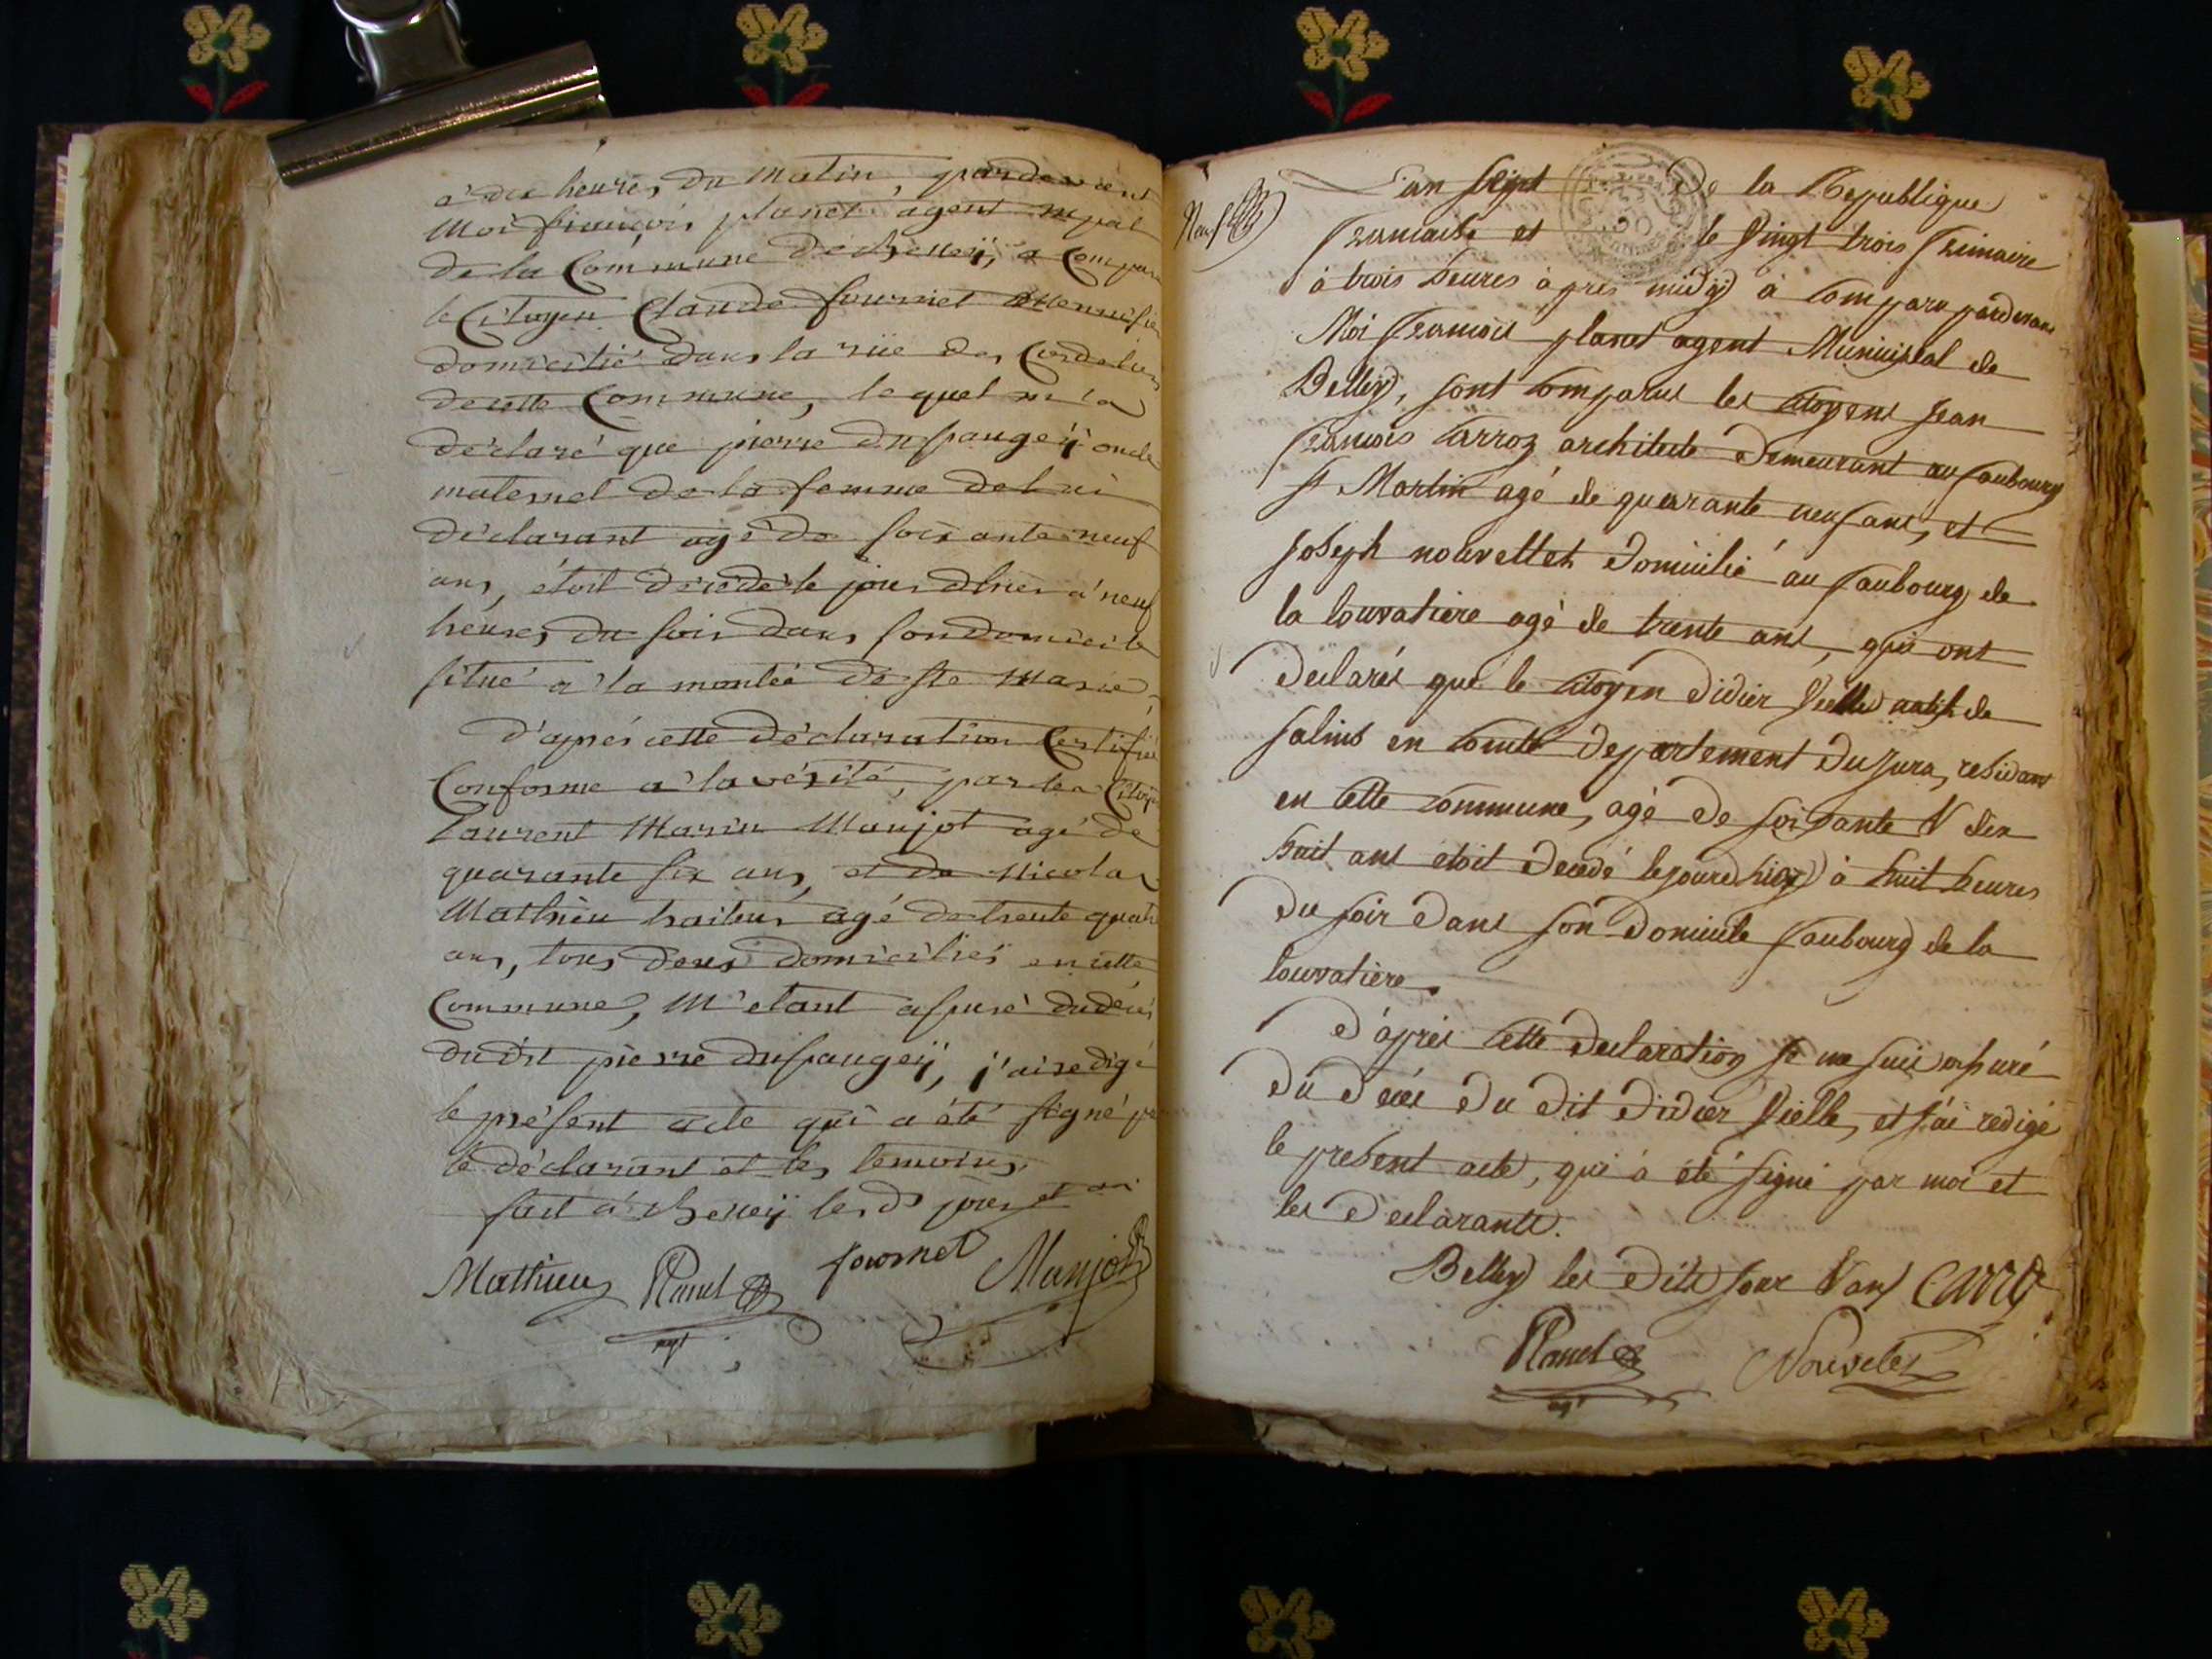 a dix heures du matin, pardevant
Moi françois planet agent mpal
de la Commune de belleÿ, a Compar
le Citoyen Claude fournet
domicilié dans la rüe des Cordeliers
de cette Commune, lequel m'a
déclaré que pierre dufaugeÿ oncle
maternel de la femme de lui
déclarant agé de soixante neuf
ans, étoit décédé le jour d'hier à neuf
heures du soir dans son domicile
situé a la montée de Ste Marie,
d'après cette déclaration Certifiée
Conforme a la vérité, par les Citoy
Laurent Marin Maujot agé de
quarante six ans, et de Nicolas
Mathieu traiteur agé de trente quatr
ans, tous deux domiciliés en cette
Commune, M'etant assuré du décès
dudit pierre dufaugeÿ, j'ai redigé
le présent acte qui a été signé p
le déclarant et les temoins,
fait à belleÿ les d jour et an
Mathieu Planet fournet Maujot
agt
L'an Sept de la Republique
francaise et le Vingt trois frimaire
à trois heures après midÿ à comparu pardevant
Moi francois planet agent Municipal de
Belleÿ, sont comparus les citoyens Jean
francois Carroz architecte demeurant au faubourg
St Martin agé de quarante neuf ans, et
Joseph nouvellet domicilié au faubourg de
la louvatiere agé de trente ans, qui ont
declarés que le citoyen didier Vielle natif de
Salins en comté departement du Jura, residant
en cette commune, agé de soixante & dix
huit ans etoit decedé le jour d'hier à huit heures
du soir dans son domicile faubourg de la
louvatiere.
d'après cette declaration je me suis assuré
du decés du dit didier Vielle, et j'ai redigé
le present acte, qui à été signé par moi et
les declarants.
Belleÿ les dits jour & an Carroz
Planet Nouvelet
agt